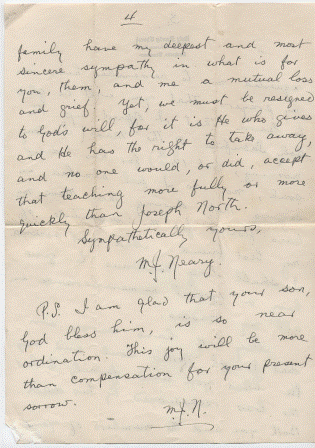 4
family have my deepest and most
sincere sympathy in what is for
you, them, and me a mutual loss
and grief. Yet, we must be resigned
to God's will, for it is He who gives
and He has the right to take away,
and no one would, or did, accept
that teaching more fully or more
quickly than Joseph North.
Sympathetically yours,
M.J. Neary.
P.S. I am glad that your son,
God bless him, is so near
ordination. This joy will be more
than compensation for your present
sorrow.
M.J.N.